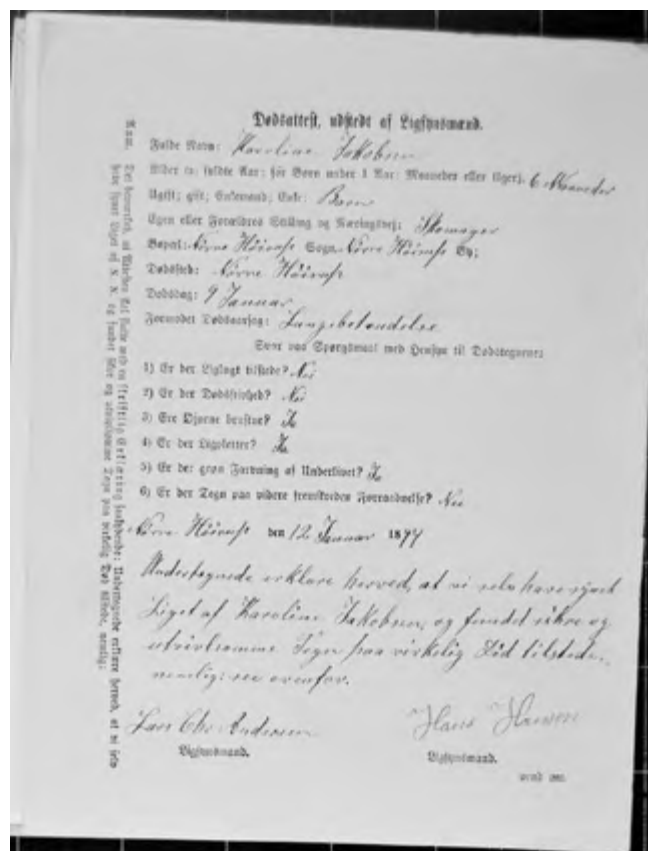 Dødsattest, udstedt af Ligsynsmænd.
Fulde Navn: Karoline Jakobsen
Alder (i fuldte Aar; for Børn under 1 Aar: Maaneder eller Uger): 6 Maaneder
Ugift; gift; Enkemand; Enke: Barn
Egen eller Forældres Stilling og Næringsvej: Skomager
Bopæl: Nörre Sogn: Nörre By:
Dødssted: Nörre
Dødsdag: 9 Januar
Formodet Dødsaarsag: Lungebetændelse
Svar paa Spørgsmaal med Hensyn til Dødstegnene:
1) Er der Liglugt tilstede? Nei
2) Er der Dødsstivhed? Nei
3) Ere Øjnene brustne? Ja
4) Er der Ligpletter? Ja
5) Er der grøn Farvning af Underlivet? Ja
6) Er der Tegn paa videre fremskreden Forraadnelse? Nei
Nörre den 12 Januar 1894
Undertegnede erklære herved, at vi selv have synet
Liget af Karoline Jakobsen, og fundet sikre og
utvivlsomme Tegn paa virkelig Död tilstede,
nemlig: se ovenfor.
Lars Chr. Andersen Hans Hansen
Ligsynsmand. Ligsynsmand.
vend om.
Anm. Det bemærkes, at Attesten skal slutte med en skriftlig Erklæring saalydende: Undertegnede erklære herved, at vi selv
have synet Liget af N. N. og fundet sikre og utvivlsomme Tegn paa virkelig Død tilstede, nemlig: